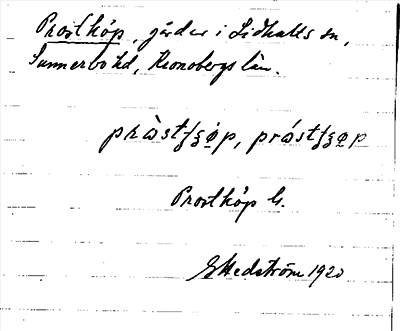 Prostköp, gårdar i Lidhults sn,
Sunnerbo hd, Kronobergs län.
Prostköp G.
G Hedström 1920